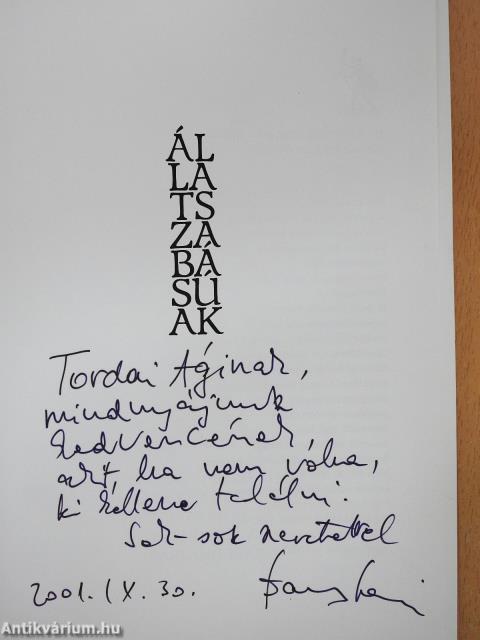 ÁL
LA
TS
ZA
BÁ
SÚ
AK
Tordai Áginak,
mindnyájunk
kedvencének,
azt, ha nem volna,
ki kellene találni.
Sok-sok szeretettel
2001. IX. 30.
Antikvárium.hu